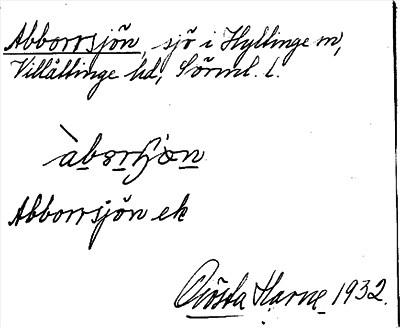 Abborrsjön, sjö i Hyllinge m,
Villåttinge hd, Sörml. l.
Abborrsjön ek
Gösta Harne 1932.